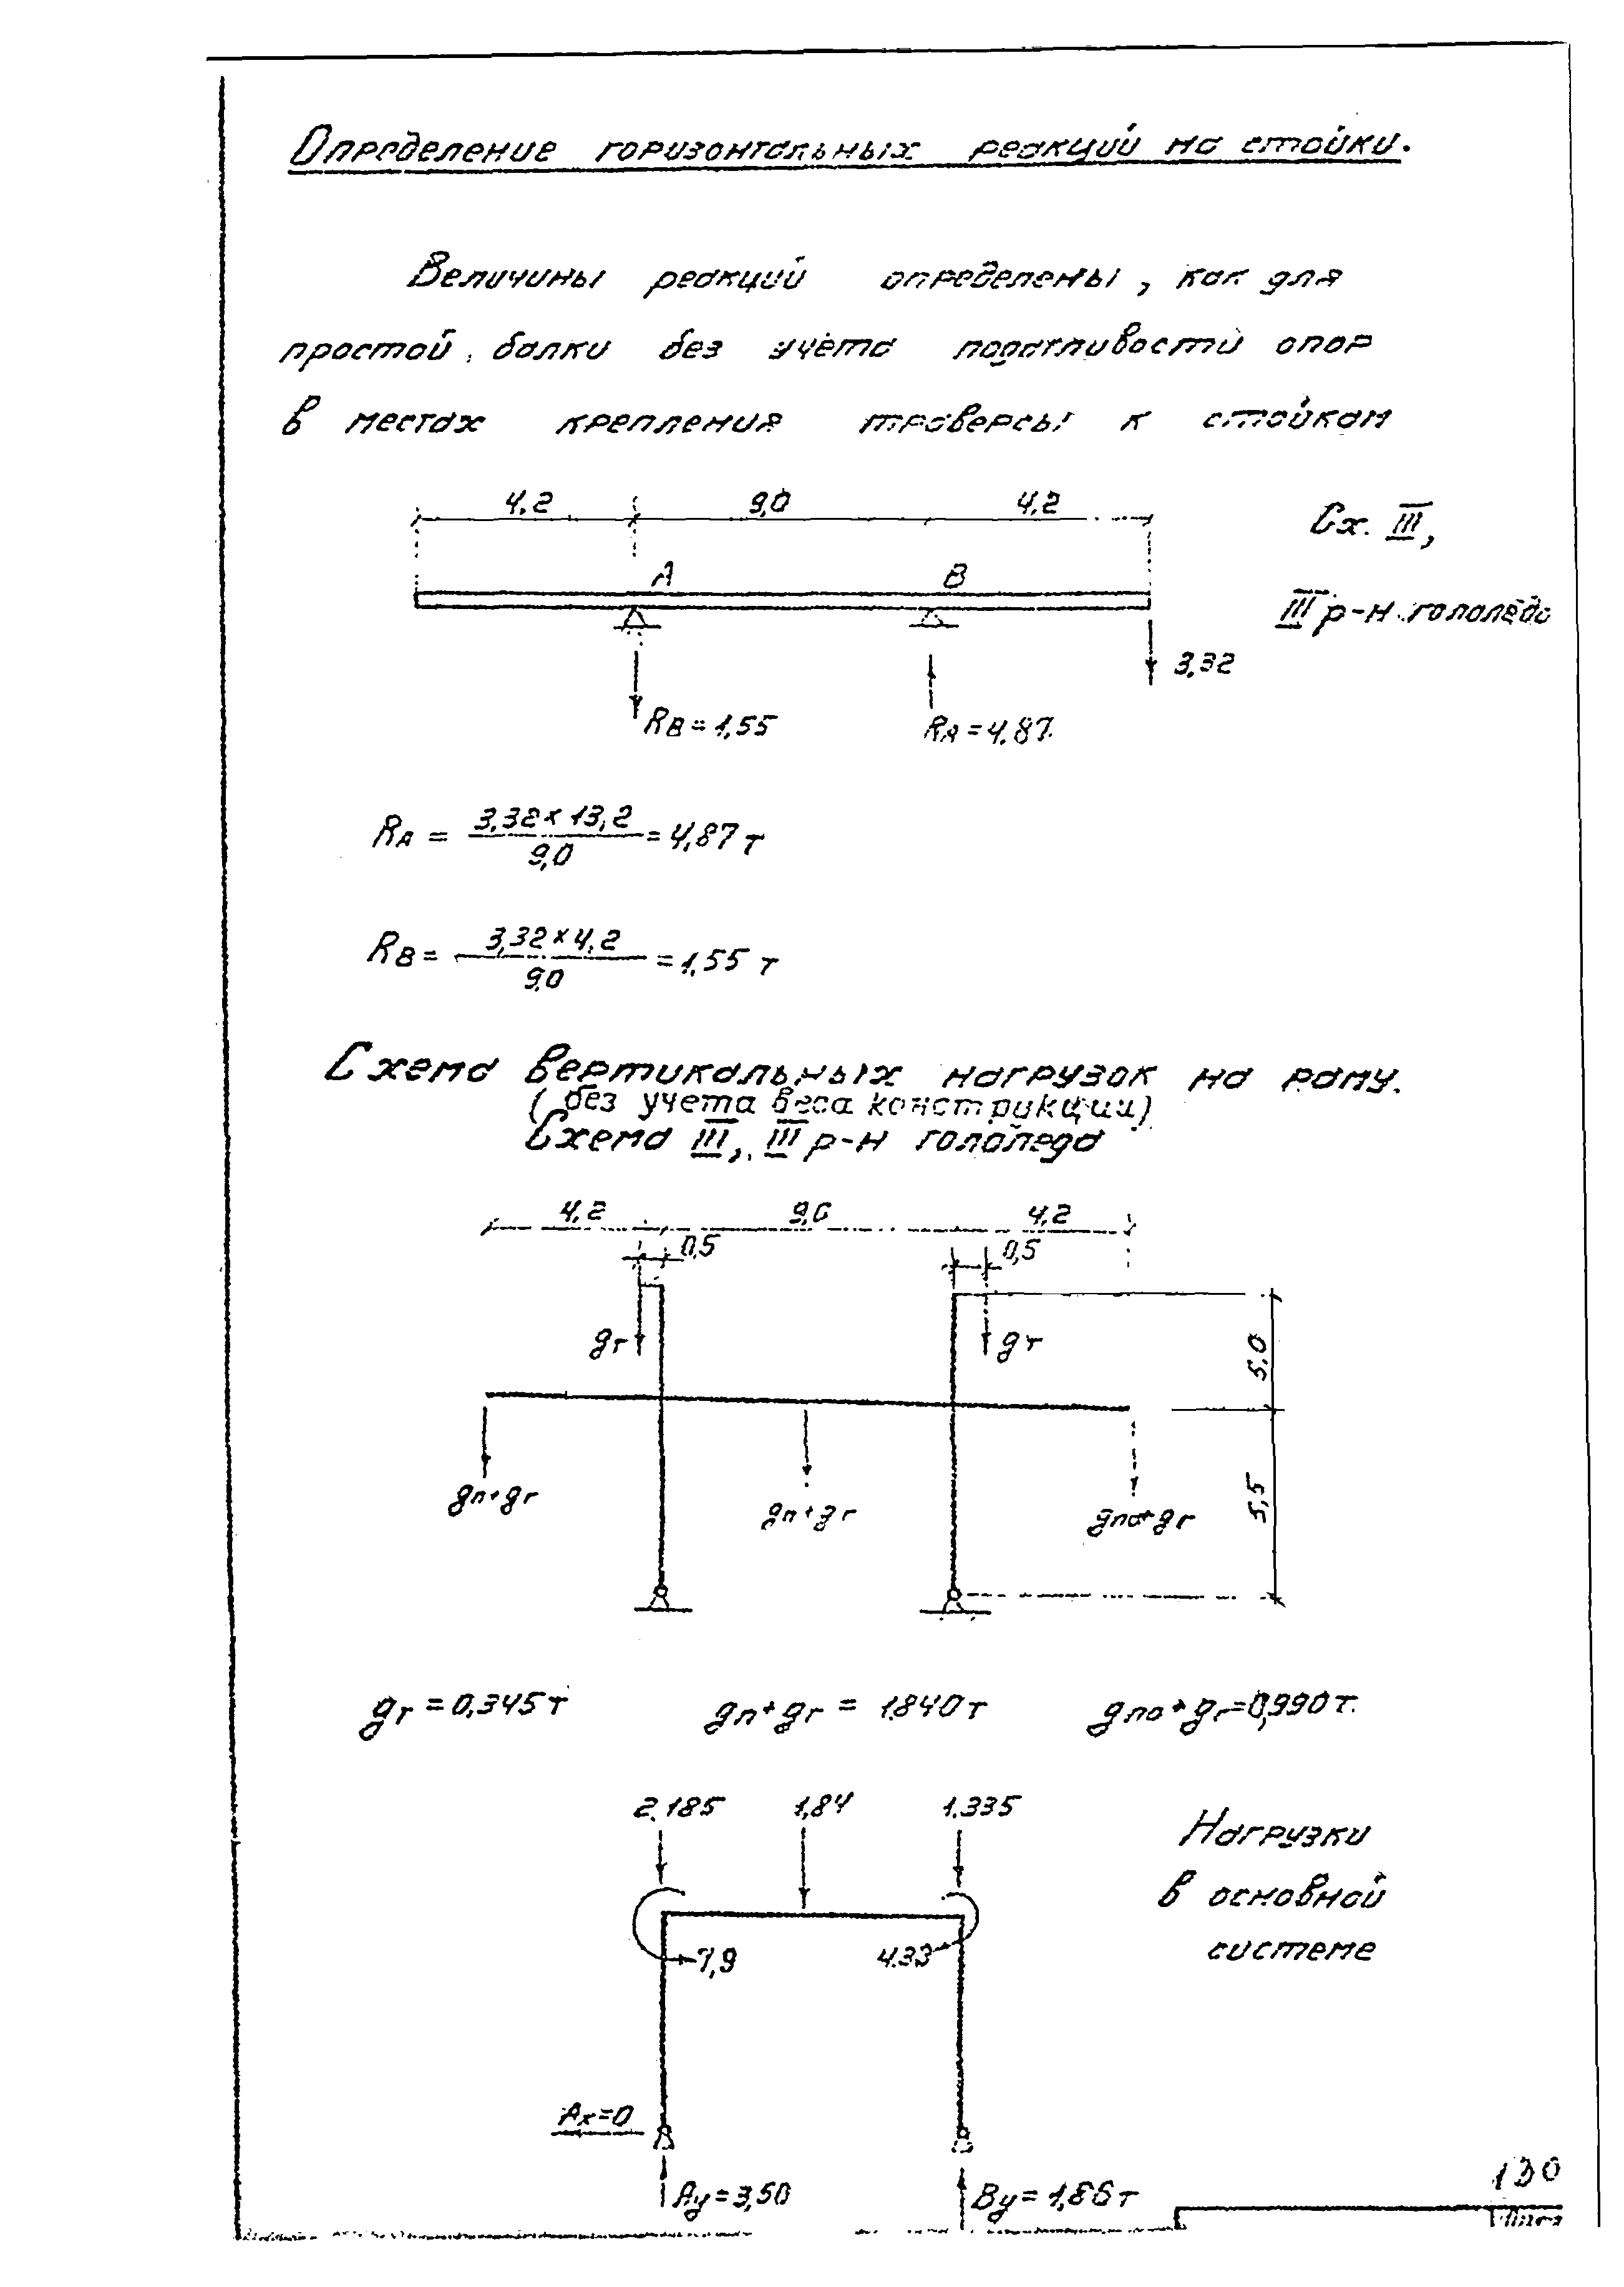 Определение горизонтальных реакций на стойки.
Величины реакций определены, как для
простой балки без учёта податливости опор
в местах крепления траверсы к стойкам
4,2 9,0 4,2
Сх. III,
A B
III р-н гололёда
3,32
RB = 1,55 RA = 4,87
RA = 3,32 x 13,2 / 9,0 = 4,87 т
RB = 3,32 x 4,2 / 9,0 = 1,55 т
Схема вертикальных нагрузок на раму.
(без учета веса конструкции)
Схема III, III р-н гололеда
4,2 9,0 4,2
0,5 0,5
gг gг
5,0
gп+gг gп+gг gпо+gг
5,5
gг = 0,345т gп+gг = 1,840т gпо+gг=0,990т.
2,185 1,84 1,335
Нагрузки
в основной
системе
7,9 4.33
Ax=0
Ay = 3,50 By = 1,86 т
130
Лист